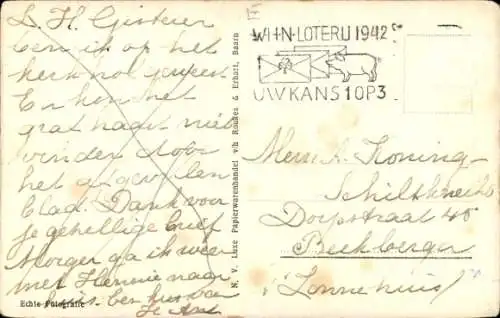 L. H. Gisteren
ben ik op het
kerkhof geweest
En kon het
graf haast niet
vinden door
het afgevallen
blad. Dank voor
je gezellige brief
Morgen ga ik weer
met Hennie naar
huis. ben hier van
Je
Echte Fotografie
N. V. Luxe Papierwarenhandel v/h Roukes & Erhart, Baarn
E
WIHN-LOTERIJ 1942
UW KANS 1 OP 3
Mevr. A. Koning-
Schiltkneibs
Dorpstraat 45
Beekbergen
"Zonnehuis"